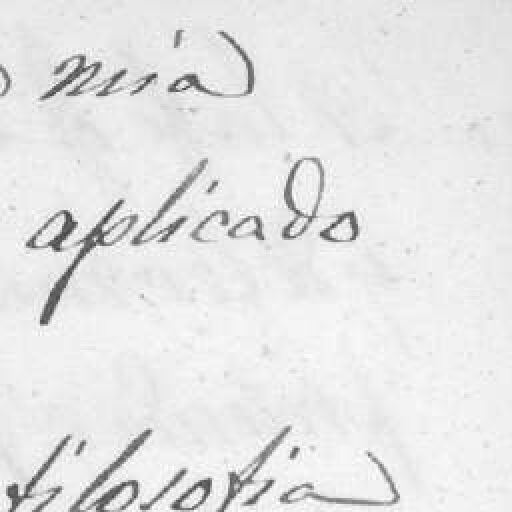 mia
aplicado
filosofia